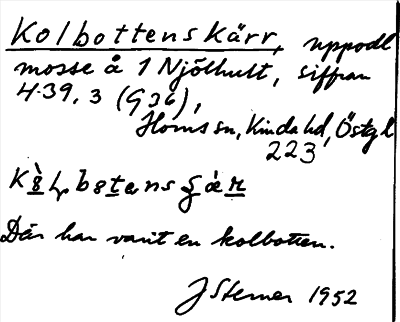 Kolbottenskärr, uppodl
mosse å 1 Njölhult, siffran
4.39.3 (G36),
Horns sn, Kinda hd, Östgl
223
Där har varit en kolbotten.
J Sterner 1952